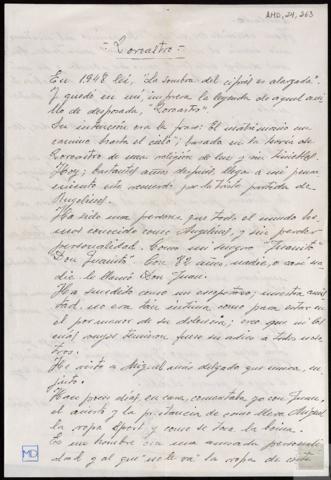 AMD, 24, 263
- Zoroastro -
En 1948 leí, "La sombra del ciprés es alargada".
Y quedó en mí, impresa la leyenda de aquel ani-
llo de desposada, "Zoroastro".
Su intención era la frase: "El matrimonio un
camino hasta el cielo"; basada en la teoría de
Zoroastro de una religión de luz y sin tinieblas.
Hoy, bastantes años después, llega a mi pensa-
miento este recuerdo por la triste partida de
Angelines.
Ha sido una persona que todo el mundo he-
mos conocido como Angelines, y sin perder
personalidad. Como mi suegro "Juanito"
"Don Juanito". Con 82 años, nadie, o casi na-
die le llamó Don Juan.
Ha sucedido como un escopetazo; nuestra amis-
tad, no era tan íntima como para estar en
el pormenor de su dolencia; creo que ni
mis suyos tuvieron fuese su adios a todos noso-
tros.
He visto a Miguel más delgado que nunca,
Hace pocos días, en casa, comentaba yo con Juan,
el acierto y la prestancia de como lleva Miguel
la ropa sport, y como se toca la boina.
Es un hombre con una acusada personali-
dad y al que "no le va" la ropa de
MD